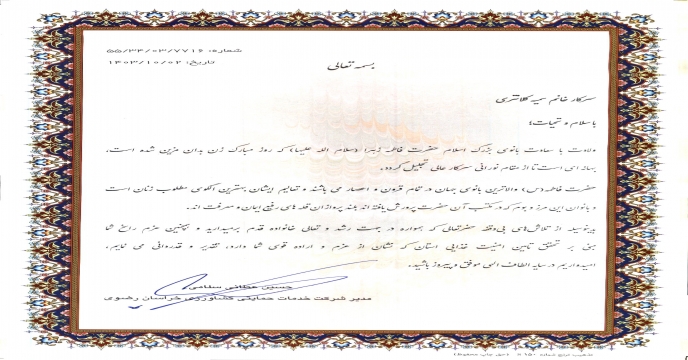 شماره: ۵۵/۳۴/۰۳/۷۷۱۶
تاریخ: ۱۴۰۳/۱۰/۰۲
بسمه تعالی
سرکار خانم سمیه کلانتری
با سلام و تحیات؛
ولادت با سعادت بانوی بزرگ اسلام حضرت فاطمه زهرا (سلام الله علیها) که روز مبارک زن بدان مزین شده است،
بهانه ای است تا از مقام نورانی سرکار عالی تجلیل گردد.
حضرت فاطمه (س) والاترین بانوی جهان در تمام قرون و اعصار می باشند و تعالیم ایشان بهترین الگوی مطلوب زنان است
و بانوان این مرز و بوم که در مکتب آن حضرت پرورش یافته اند بلند پروازان قله های رفیع ایمان و معرفت اند.
بدینوسیله از تلاش‌های بی‌وقفه حضرتعالی که همواره در جهت رشد و تعالی خانواده قدم برمیدارید و همچنین عزم راسخ شما
مبنی بر تحقق تامین امنیت غذایی استان که نشان از عزم و اراده قوی شما دارد، تقدیر و قدردانی می نمایم،
امیدواریم در سایه الطاف الهی موفق و پیروز باشید.
حسین عطائی سلامی
مدیر شرکت خدمات حمایتی کشاورزی خراسان رضوی